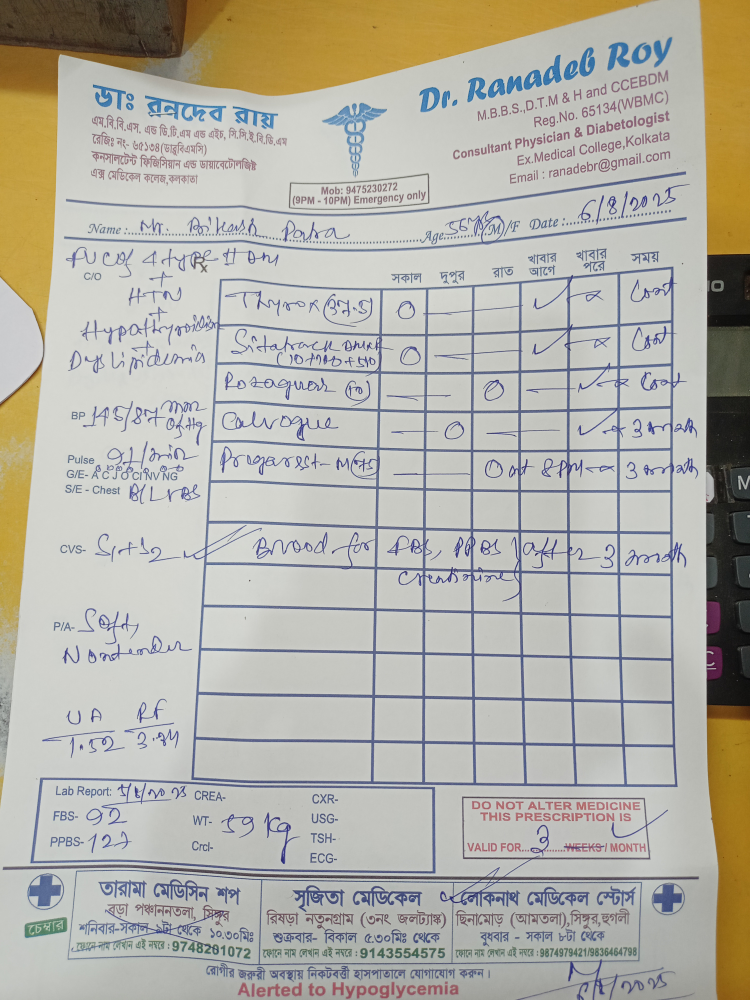 ডাঃ রনদেব রায়
এম.বি.বি.এস. এন্ড ডি.টি.এম এন্ড এইচ, সি.সি.ই.বি.ডি.এম
রেজিঃ নং- ৬৫১৩৪(ডাব্লুবিএমসি)
কনসালটেন্ট ফিজিসিয়ান এন্ড ডায়াবেটোলজিষ্ট
এক্স মেডিকেল কলেজ,কলকাতা
Mob: 9475230272
(9PM - 10PM) Emergency only
Dr. Ranadeb Roy
M.B.B.S.,D.T.M & H and CCEBDM
Reg.No. 65134(WBMC)
Consultant Physician & Diabetologist
Ex.Medical College,Kolkata
Email : ranadebr@gmail.com
Name : Mr. Patra Age 56 yrs (M)/F Date : 6/8/2025
Type II DM
Rx
C/O
+
HTN
+
Hypothyroidism
+
Dyslipidemia
সকাল দুপুর রাত খাবার আগে খাবার পরে সময়
Thyrox (37.5) O — — ✓ Cont
O — — ✓ Cont
(10+100+500)
(10) — — O — ✓ Cont
— O — — ✓ 3 month
— — O at 8 PM 3 month
BP 145/87 mm of Hg
Pulse 91/min
G/E- A C J O CI NV NG
S/E - Chest B/L VBS
CVS- S1+S2
Blood for FBS, PPBS after 3 month
creatinine
P/A- Soft,
Nontender
UA
1.52
3.94
Lab Report: 5/8/2025 CREA- CXR-
FBS- 92 WT- 59 Kg USG-
PPBS- 127 Crcl- TSH-
ECG-
DO NOT ALTER MEDICINE
THIS PRESCRIPTION IS
VALID FOR...3...WEEKS / MONTH
চেম্বার
তারামা মেডিসিন শপ
বড়া পঞ্চাননতলা, সিঙ্গুর
শনিবার-সকাল ৯টা থেকে ১০.৩০মিঃ
ফোনে নাম লেখান এই নম্বরে : 9748201072
সৃজিতা মেডিকেল
রিষড়া নতুনগ্রাম (৩নং জলট্যাঙ্ক)
শুক্রবার- বিকাল ৫.৩০মিঃ থেকে
ফোনে নাম লেখান এই নম্বরে : 9143554575
লোকনাথ মেডিকেল স্টোর্স
ছিনামোড় (আমতলা),সিঙ্গুর,হুগলী
বুধবার - সকাল ৮টা থেকে
ফোনে নাম লেখান এই নম্বরে : 9874979421/9836464798
রোগীর জরুরী অবস্থায় নিকটবর্ত্তী হাসপাতালে যোগাযোগ করুন।
Alerted to Hypoglycemia
6/8/2025